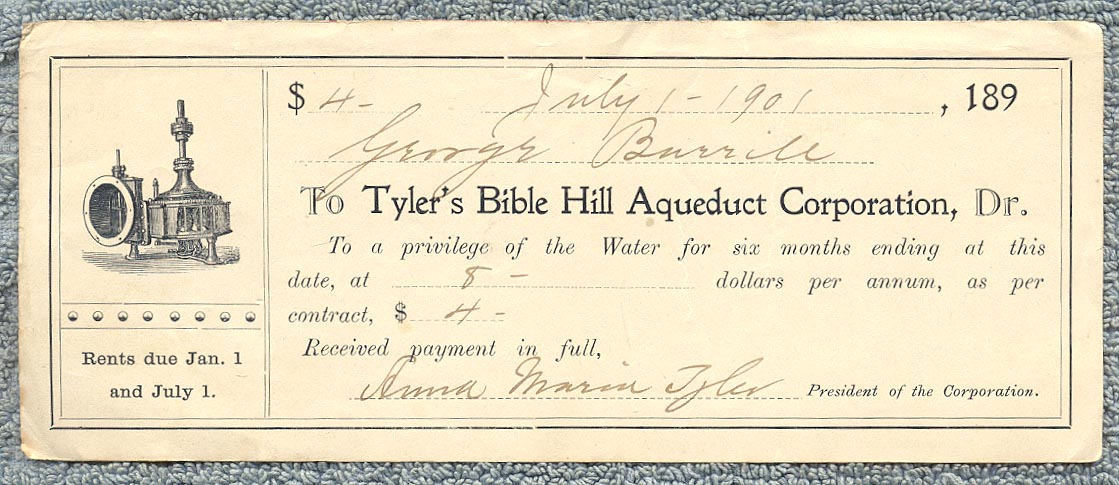 $ 4- July 1 - 1901, 189
George Burrill
To Tyler's Bible Hill Aqueduct Corporation, Dr.
To a privilege of the Water for six months ending at this
date, at 8 - dollars per annum, as per
contract, $ 4 -
Received payment in full,
Anna Maria Tyler President of the Corporation.
Rents due Jan. 1
and July 1.